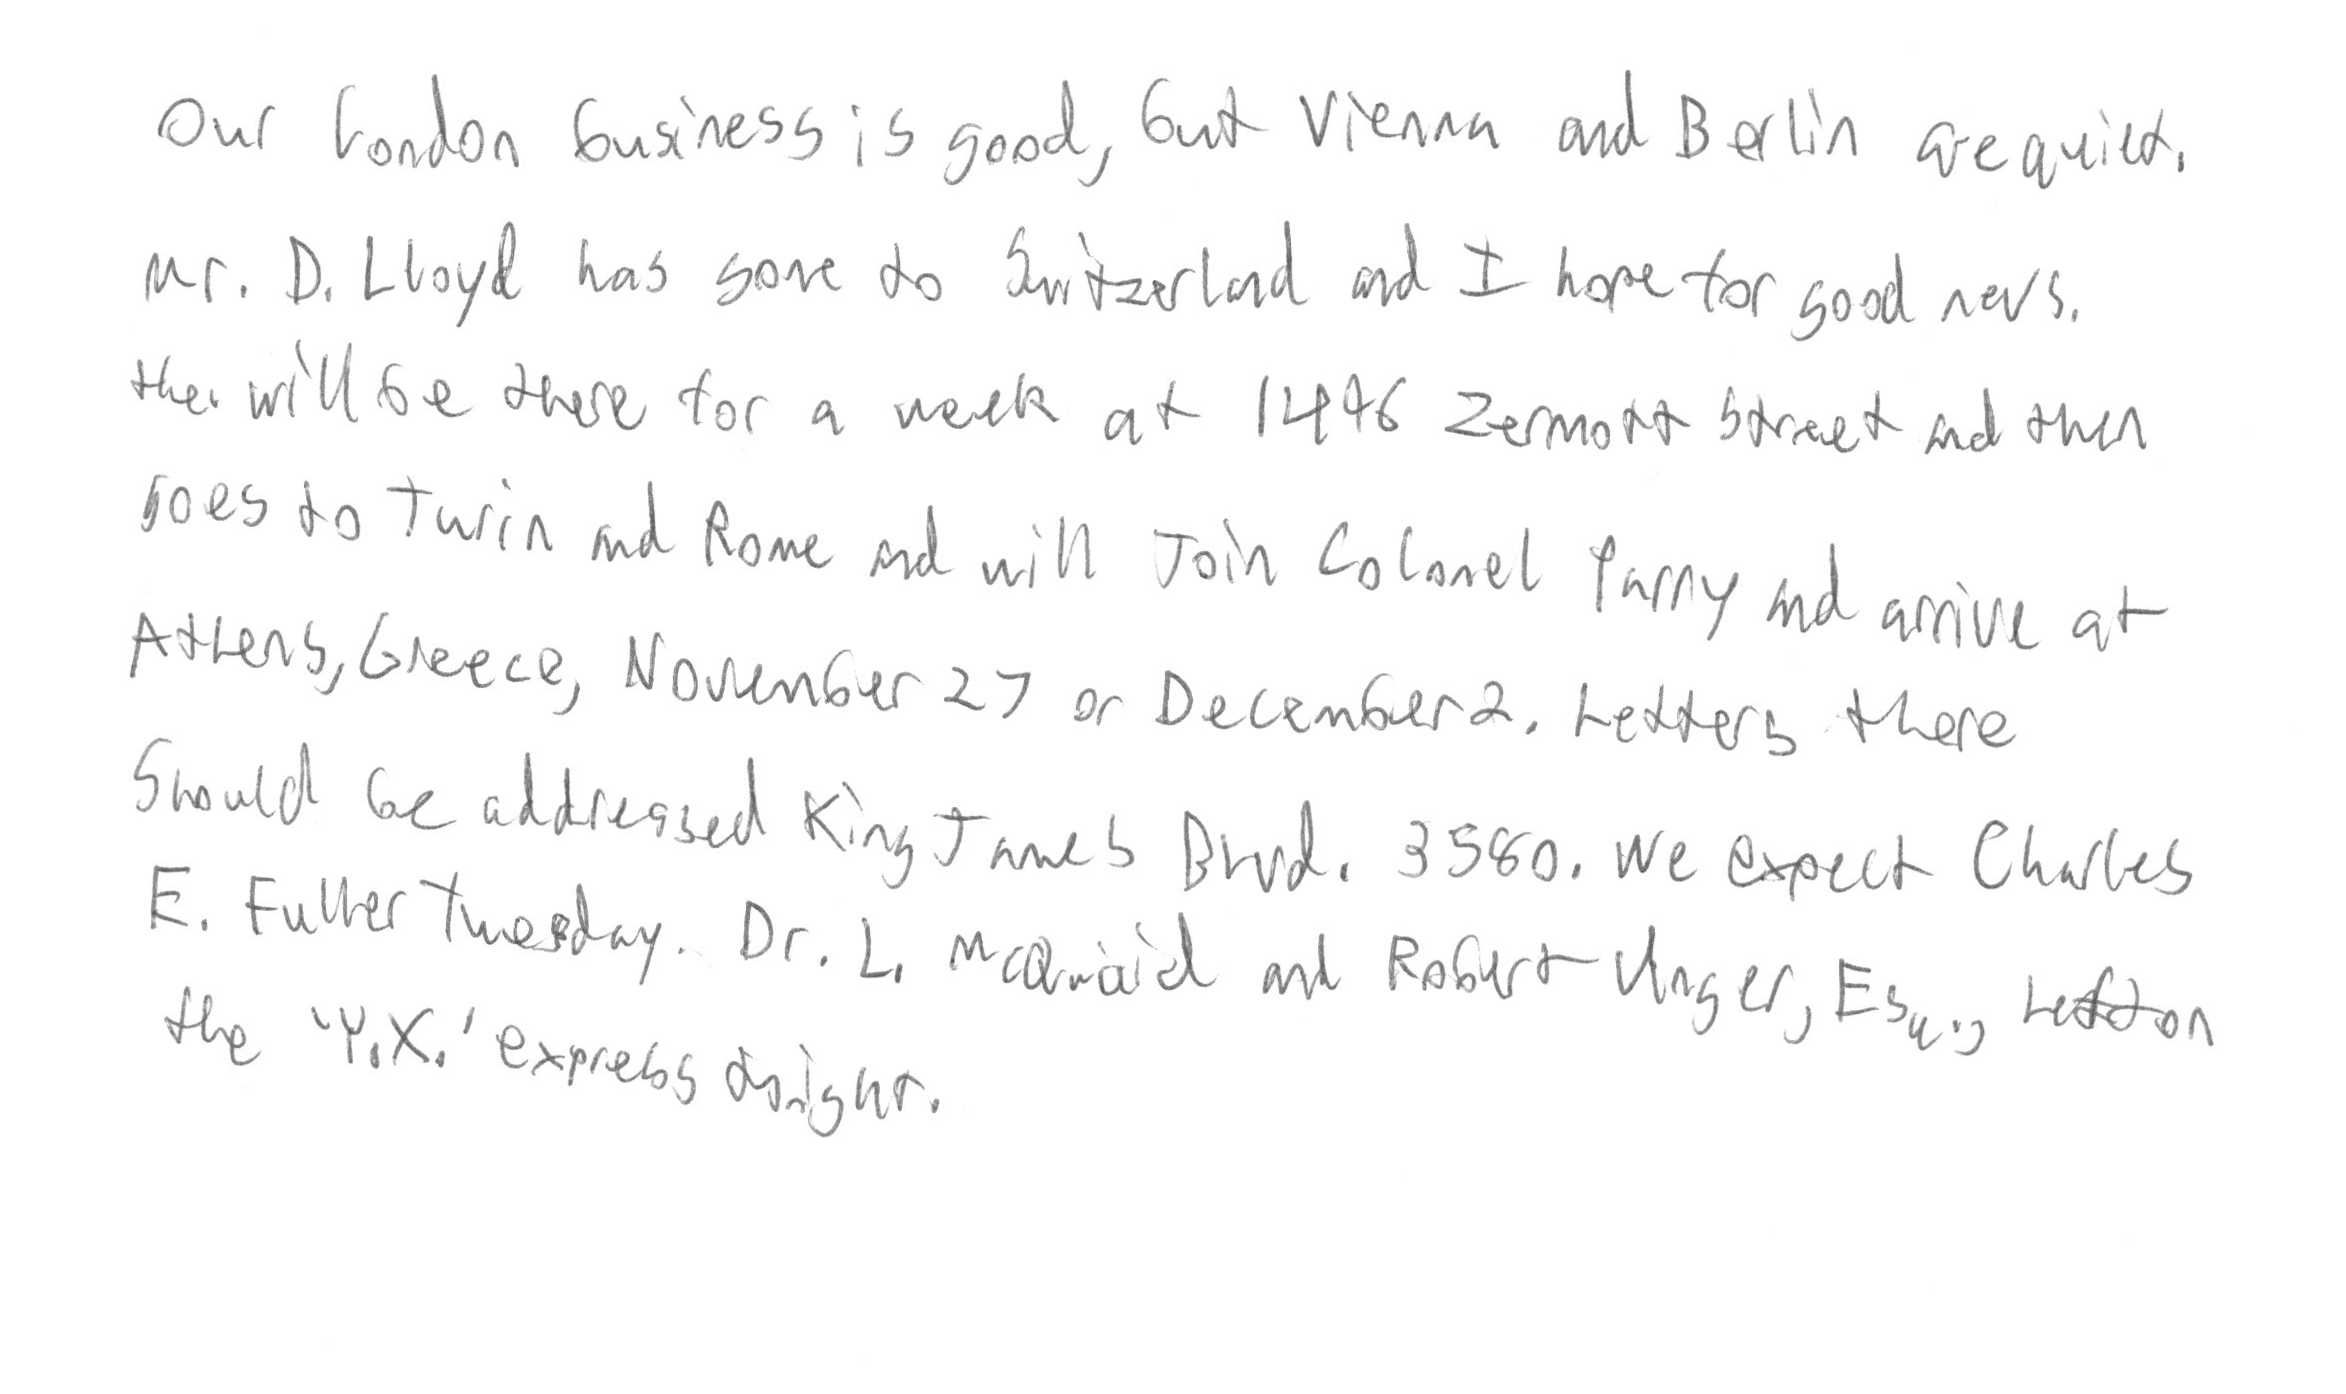 Our London business is good, but Vienna and Berlin are quiet.
Mr. D. Lloyd has gone to Switzerland and I hope for good news.
the will be there for a week at 1496 Zermott Street and then
goes to Turin and Rome and will Join Colonel Parry and arrive at
Athens, Greece, November 27 or December 2. Letters there
Should be addressed King James Blvd. 3580. We expect Charles
E. Fuller Tuesday. Dr. L. McQuaid and Robert Unger, Esq., Left on
the 'Y.X.' express tonight.